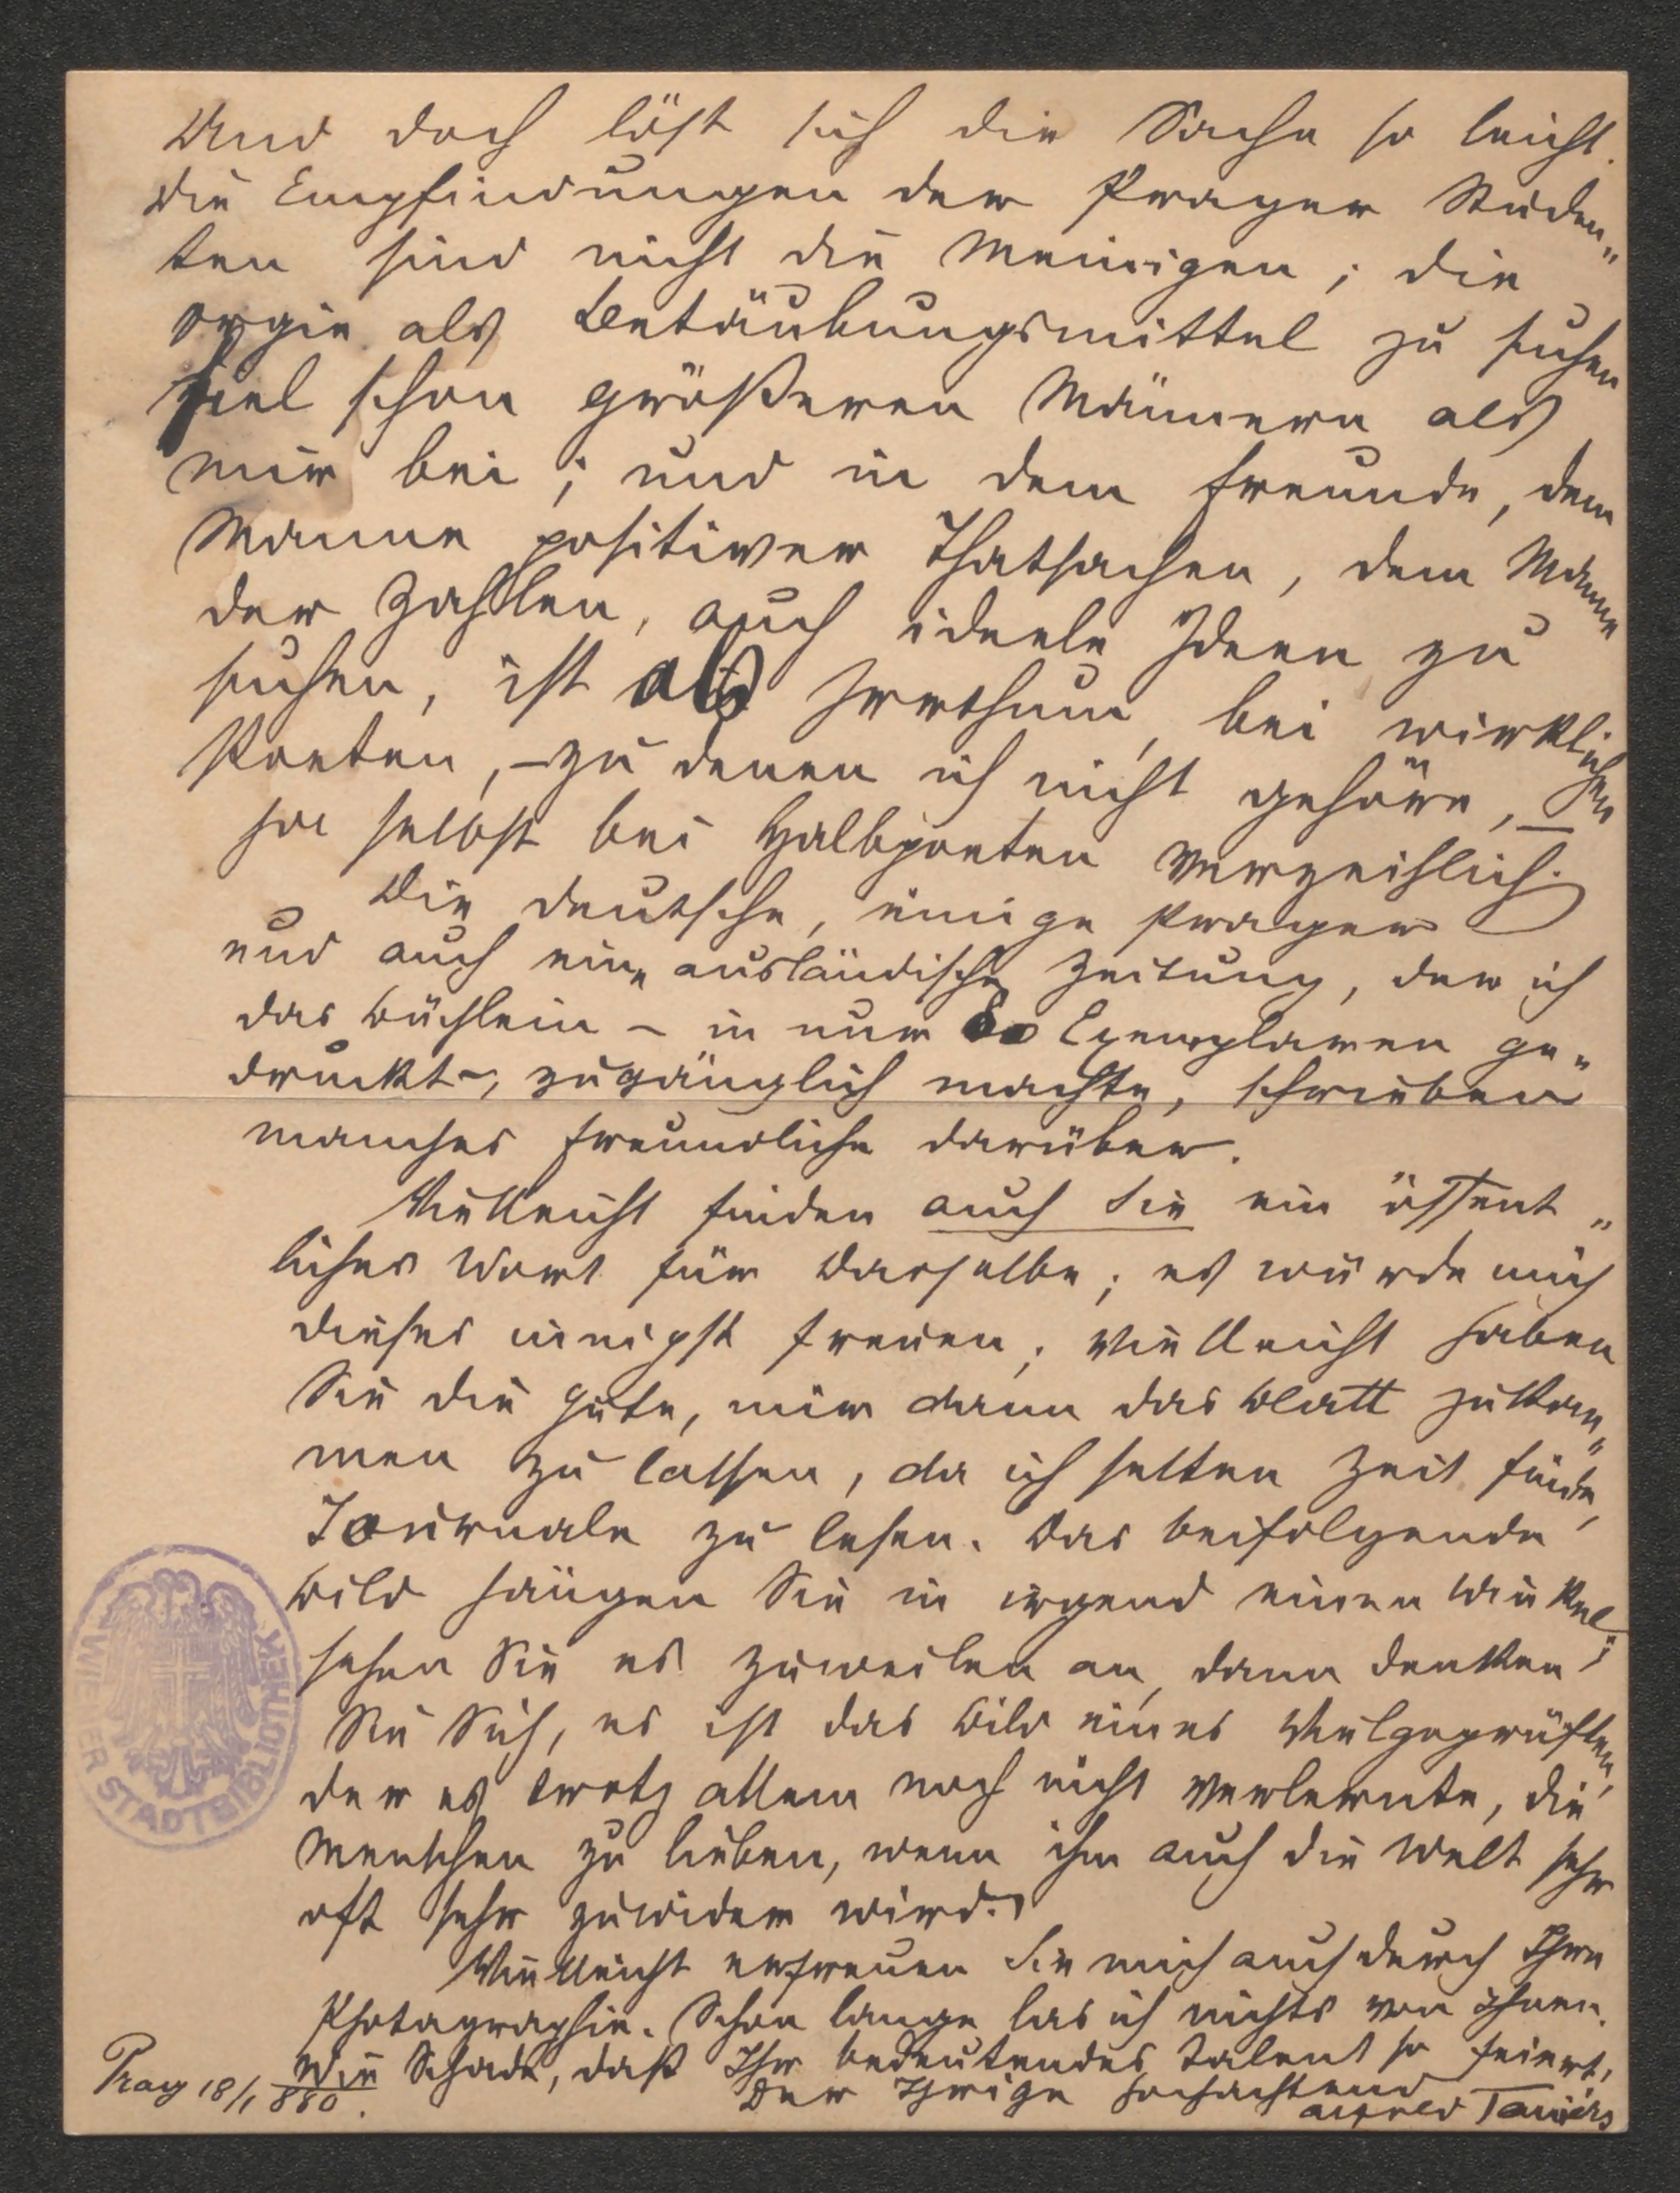 Und doch löst sich die Sache so leicht.
Die Empfindungen der Prager Studen„
ten sind nicht die Meinigen; die
Orgie als Betäubungsmittel zu suchen
fiel schon größeren Männern als
mir bei; und in dem Freunde, dem
Manne positiver Thatsachen, dem Manne
der Zahlen, auch ideele Ideen zu
suchen, ist als Irrthum, bei wirklichen
Poeten, – zu denen ich nicht gehöre, –
ja selbst bei Halbpoeten verzeihlich.
Die deutsche, einige Prager
und auch eine ausländische Zeitung, der ich
das Büchlein – in nur 80 Exemplaren ge„
druckt –, zugänglich machte, schrieben
manches freundliche darüber.
Vielleicht finden auch Sie ein öffent„
liches Wort für Dasselbe; es würde mich
dieses innigst freuen; vielleicht haben
Sie die Güte, mir dann das Blatt zukom„
men zu lassen, da ich selten Zeit finde,
Journale zu lesen. Das beifolgende
Bild hängen Sie in irgend einen Winkel;
sehen Sie es zuweilen an, dann denken
Sie Sich, es ist das Bild eines Vielgeprüften,
der es trotz allem noch nicht verlernte, die
Menschen zu lieben, wenn ihm auch die Welt sehr
oft sehr zuwider wird.
Vielleicht erfreuen Sie mich auch durch Ihre
Photographie. Schon lange las ich nichts von Ihnen.
Wie Schade, daß Ihr bedeutendes Talent so feiert.
Der Ihrige hochachtend
Prag 18/1 880.
Alfred
WIENER STADTBIBLIOTHEK